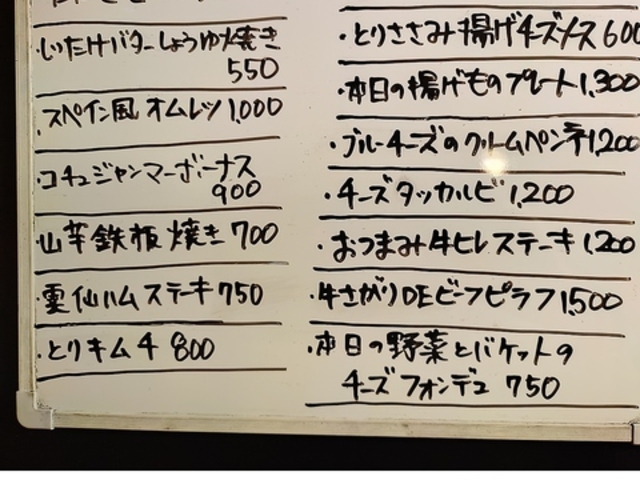 ・しいたけバターしょうゆ焼き
550
・スペイン風オムレツ 1,000
・コチュジャンマーボーナス
900
・山芋鉄板焼き 700
・雲仙ハムステーキ 750
・とりキムチ 800
・とりささみ揚げチーズ 600
・本日の揚げものプレート 1,300
・ブルーチーズのクリームペンネ 1,200
・チーズタッカルビ 1,200
・おつまみ牛ヒレステーキ 1,200
・牛さがりDEビーフピラフ 1,500
・本日の野菜とバケットの
チーズフォンデュ 750